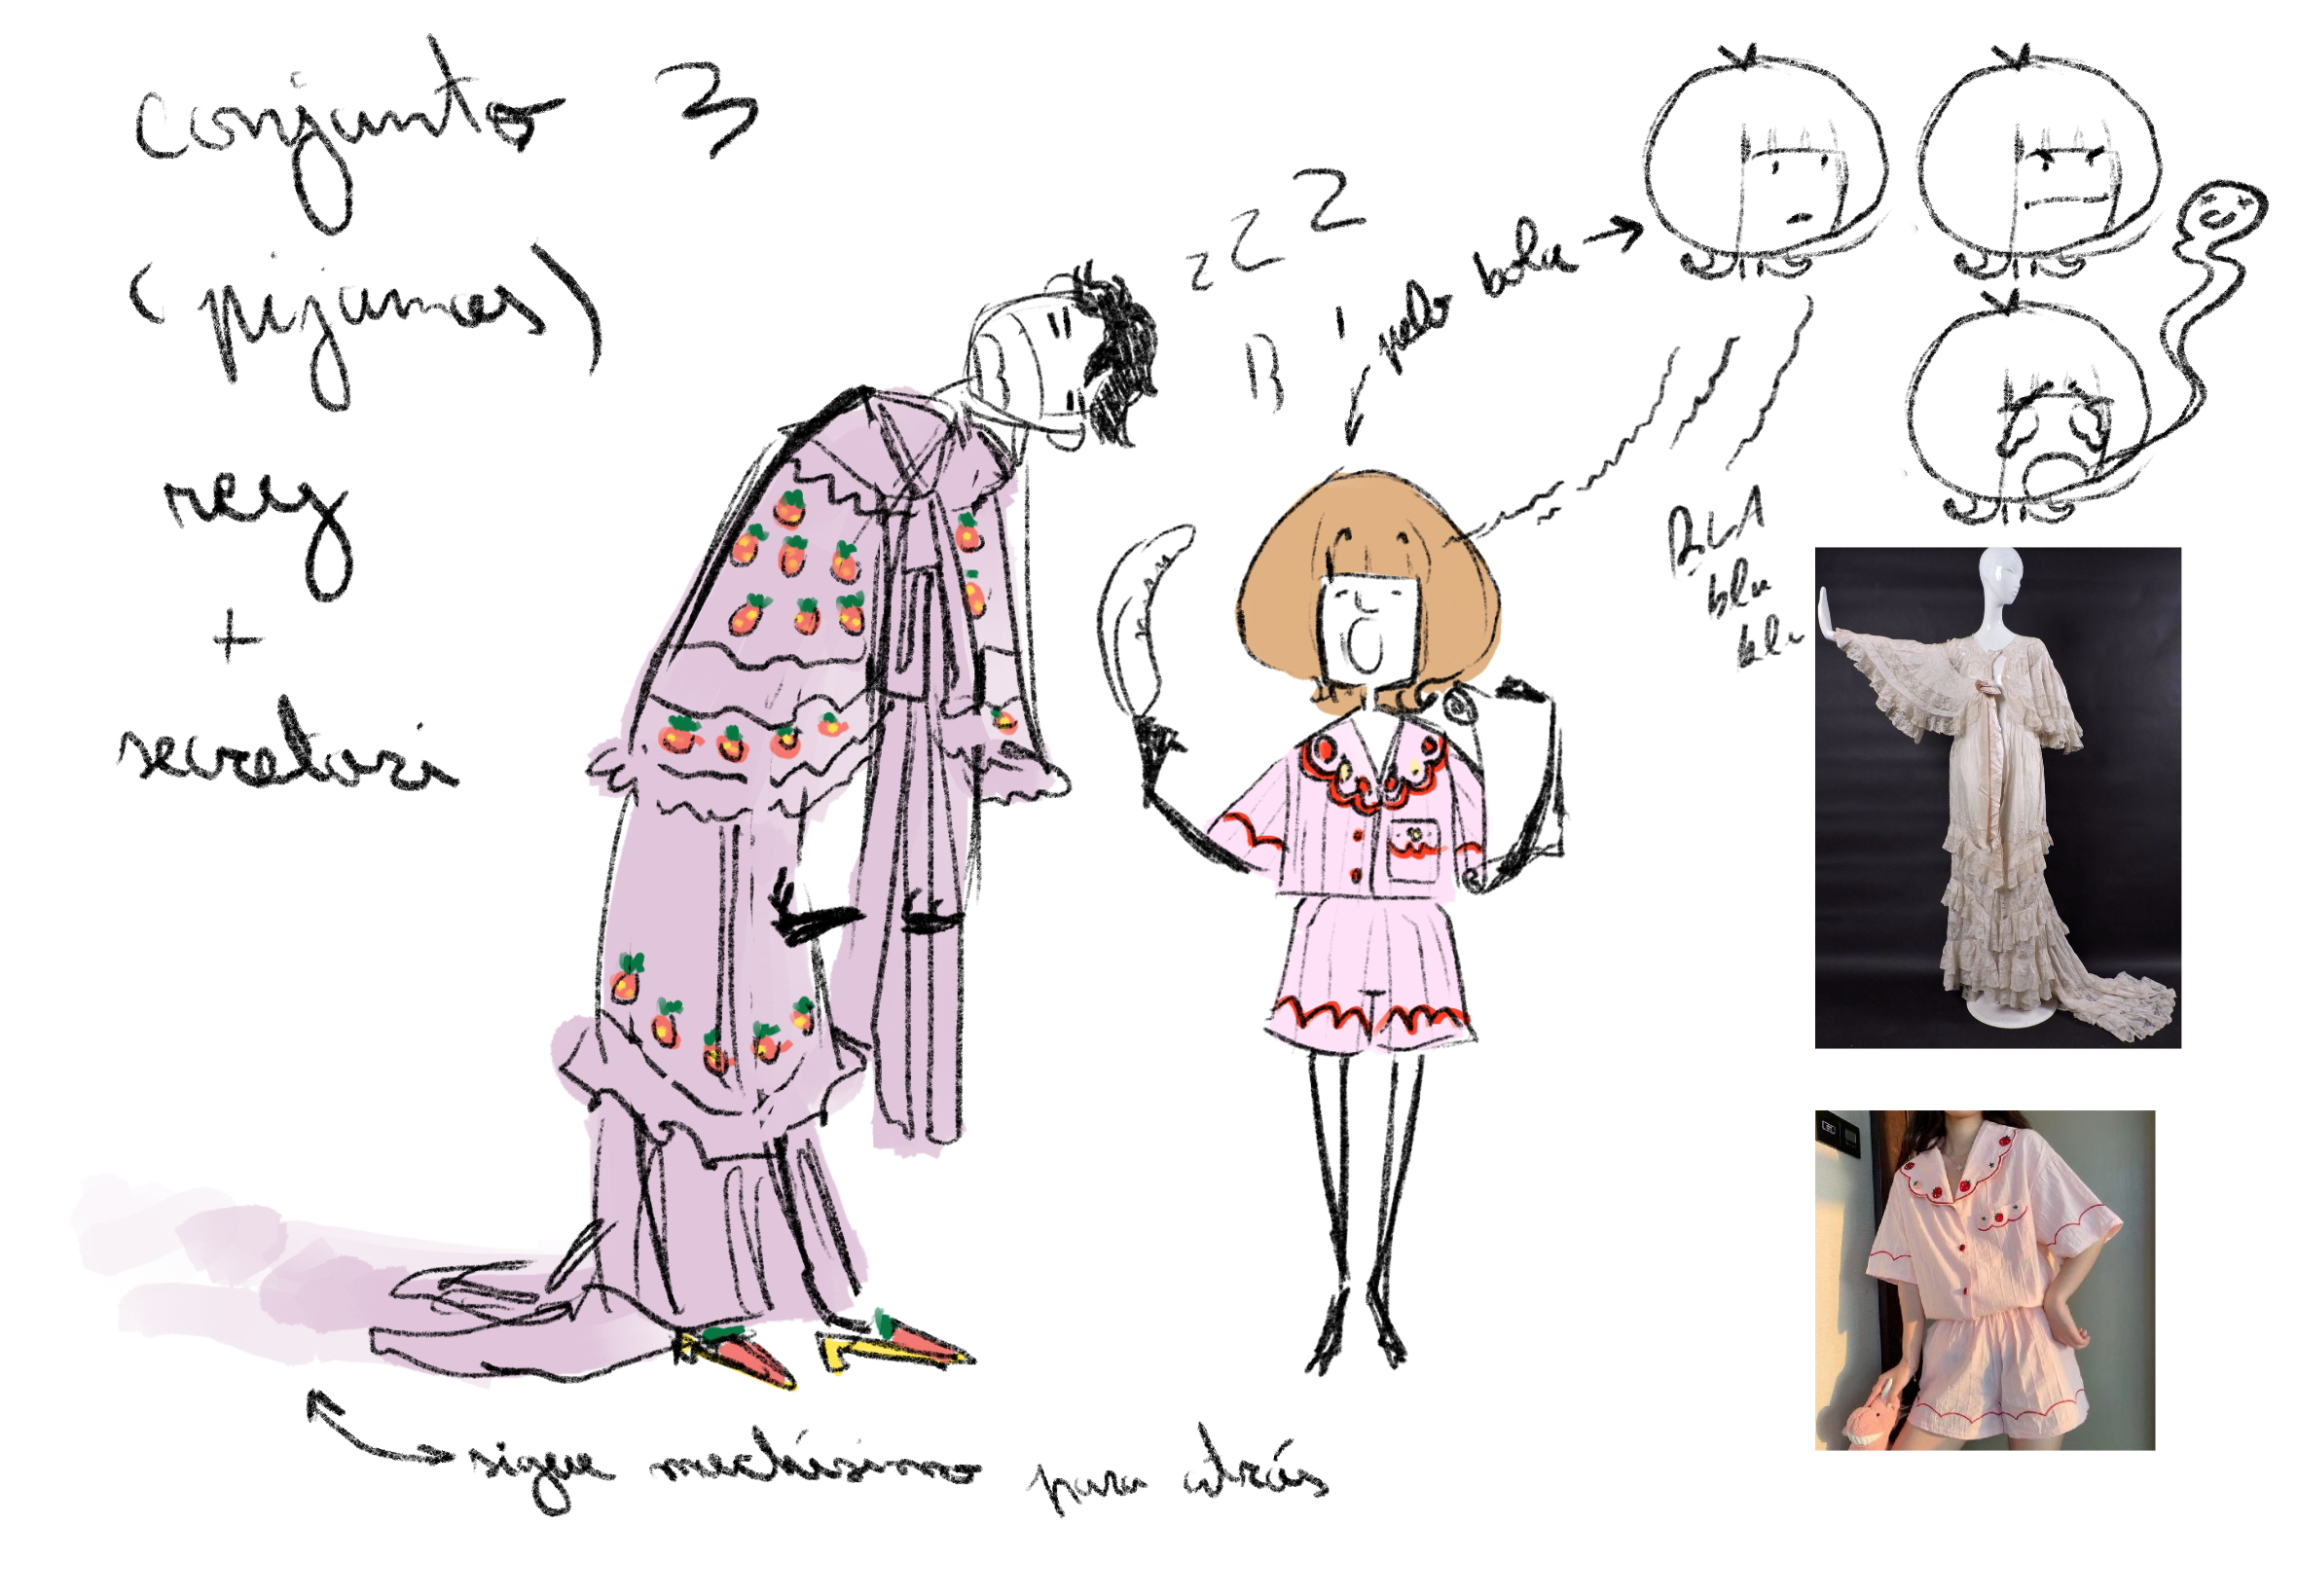 conjunto 3
(pijamas)
rey
+
secretari
z z z
pelo bola →
BLA
bla
bla
sigue muchísimo para atrás